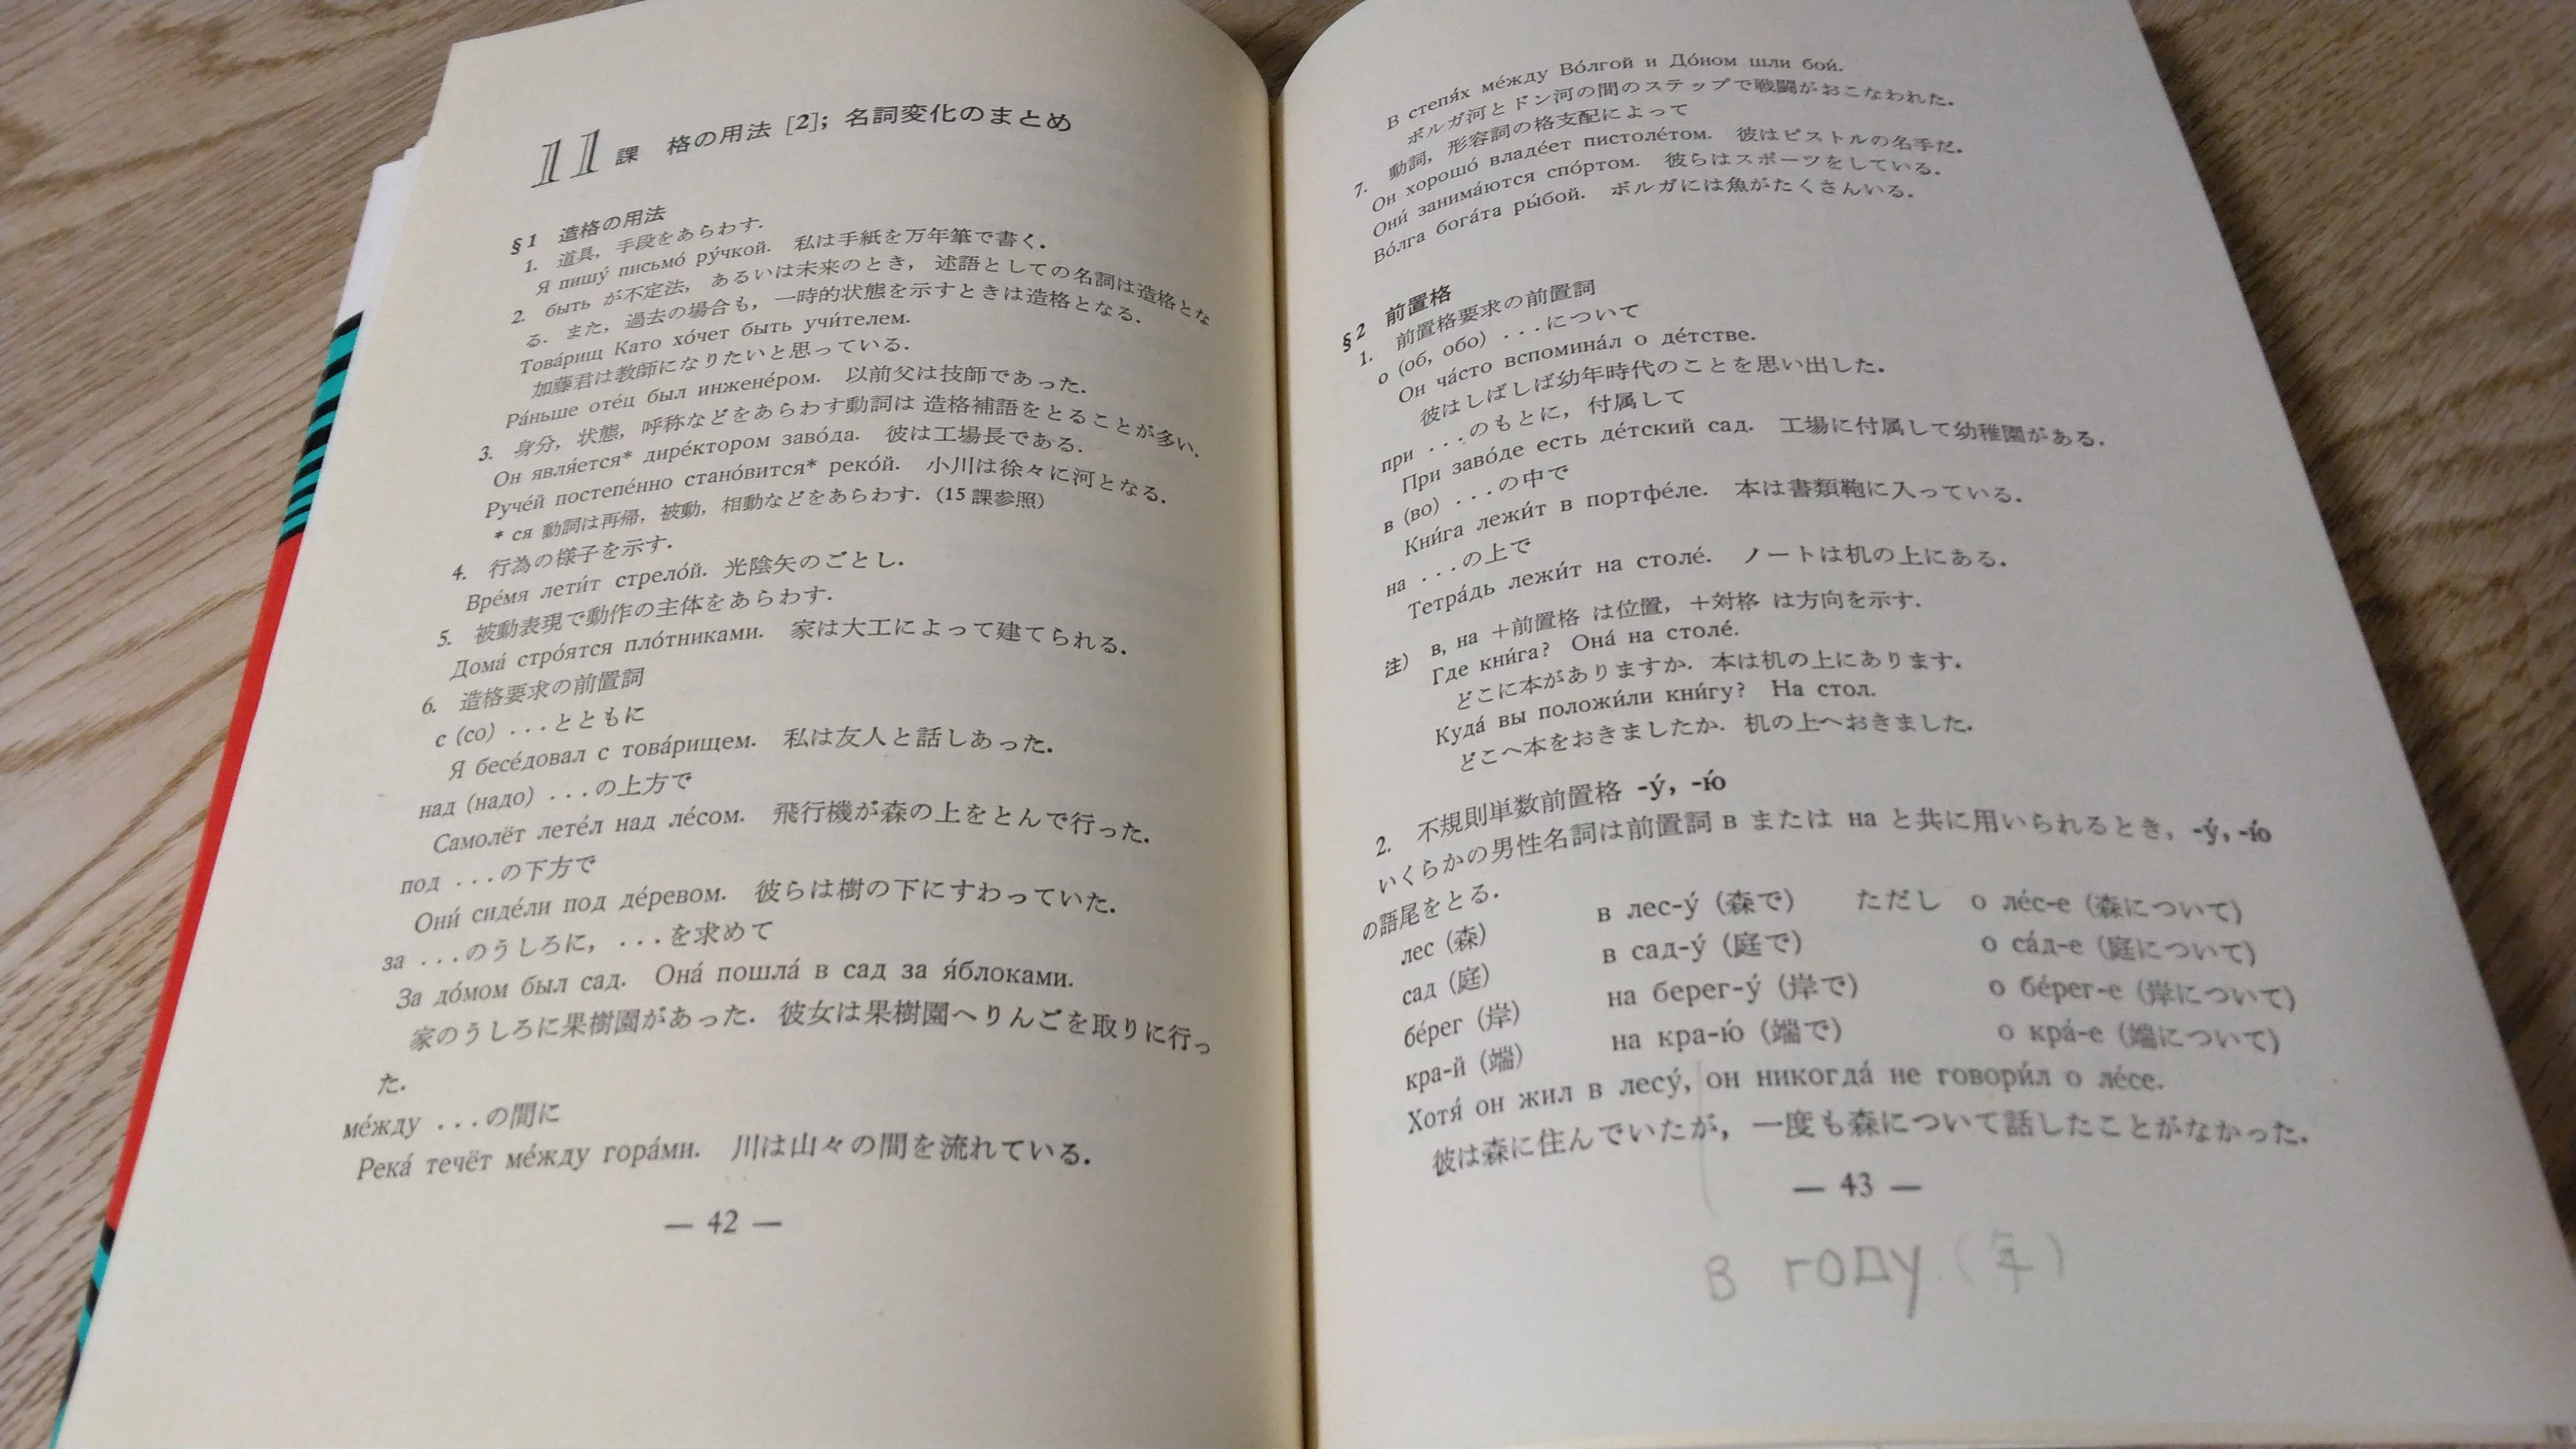 11 課 格の用法 [2]; 名詞変化のまとめ
§1 造格の用法
1. 道具, 手段をあらわす.
Я пишу́ письмо́ ру́чкой. 私は手紙を万年筆で書く.
2. быть が不定法, あるいは未来のとき, 述語としての名詞は造格とな
る. また, 過去の場合も, 一時的状態を示すときは造格となる.
Това́рищ Като хо́чет быть учи́телем.
加藤君は教師になりたいと思っている.
Ра́ньше оте́ц был инжене́ром. 以前父は技師であった.
3. 身分, 状態, 呼称などをあらわす動詞は 造格補語をとることが多い.
Он явля́ется* дире́ктором заво́да. 彼は工場長である.
Руче́й постепе́нно стано́вится* реко́й. 小川は徐々に河となる.
* ся 動詞は再帰, 被動, 相動などをあらわす. (15 課参照)
4. 行為の様子を示す.
Вре́мя лети́т стрело́й. 光陰矢のごとし.
5. 被動表現で動作の主体をあらわす.
Дома́ стро́ятся пло́тниками. 家は大工によって建てられる.
6. 造格要求の前置詞
с (со) ...とともに
Я бесе́довал с това́рищем. 私は友人と話しあった.
над (надо) ...の上方で
Самолёт лете́л над ле́сом. 飛行機が森の上をとんで行った.
под ...の下方で
Они́ сиде́ли под де́ревом. 彼らは樹の下にすわっていた.
за ...のうしろに, ...を求めて
За до́мом был сад. Она́ пошла́ в сад за я́блоками.
家のうしろに果樹園があった. 彼女は果樹園へりんごを取りに行っ
た.
ме́жду ...の間に
Река́ течёт ме́жду гора́ми. 川は山々の間を流れている.
— 42 —
В степя́х ме́жду Во́лгой и До́ном шли бои́.
ボルガ河とドン河の間のステップで戦闘がおこなわれた.
7. 動詞, 形容詞の格支配によって
Он хорошо́ владе́ет пистоле́том. 彼はピストルの名手だ.
Они́ занима́ются спо́ртом. 彼らはスポーツをしている.
Во́лга бога́та ры́бой. ボルガには魚がたくさんいる.
§2 前置格
1. 前置格要求の前置詞
о (об, обо) ...について
Он ча́сто вспомина́л о де́тстве.
彼はしばしば幼年時代のことを思い出した.
при ...のもとに, 付属して
При заво́де есть де́тский сад. 工場に付属して幼稚園がある.
в (во) ...の中で
Кни́га лежи́т в портфе́ле. 本は書類鞄に入っている.
на ...の上で
Тетра́дь лежи́т на столе́. ノートは机の上にある.
注) в, на +前置格 は位置, +対格 は方向を示す.
Где кни́га? Она́ на столе́.
どこに本がありますか. 本は机の上にあります.
Куда́ вы положи́ли кни́гу? На стол.
どこへ本をおきましたか. 机の上へおきました.
2. 不規則単数前置格 -у́, -ю́
いくらかの男性名詞は前置詞 в または на と共に用いられるとき, -у́, -ю́
の語尾をとる.
лес (森) в лес-у́ (森で) ただし о ле́с-е (森について)
сад (庭) в сад-у́ (庭で) о са́д-е (庭について)
бе́рег (岸) на берег-у́ (岸で) о бе́рег-е (岸について)
кра-й (端) на кра-ю́ (端で) о кра́-е (端について)
Хотя́ он жил в лесу́, он никогда́ не говори́л о ле́се.
彼は森に住んでいたが, 一度も森について話したことがなかった.
— 43 —
в году (年)